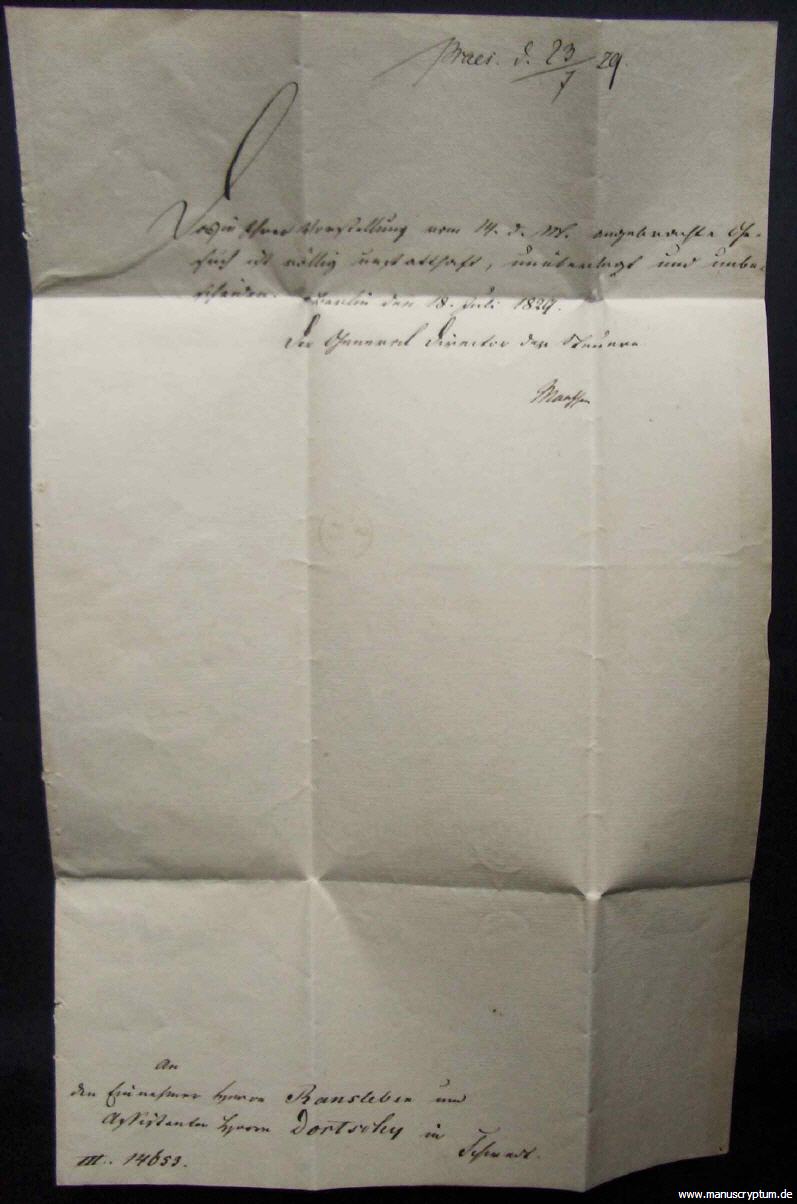 Praes. d. 23/7 29.
Das in Ihrer Vorstellung vom 14. d. M. angebrachte Ge-
such ist völlig unstatthaft, unüberlegt und unbe-
scheiden. Berlin den 18. Juli 1829.
Der General Director der Steuern
Maaßen
An
den Einnehmer Herrn Ransleben und
Assistenten Herrn Dortschy in
Schwedt.
III. 14653.
www.manuscryptum.de